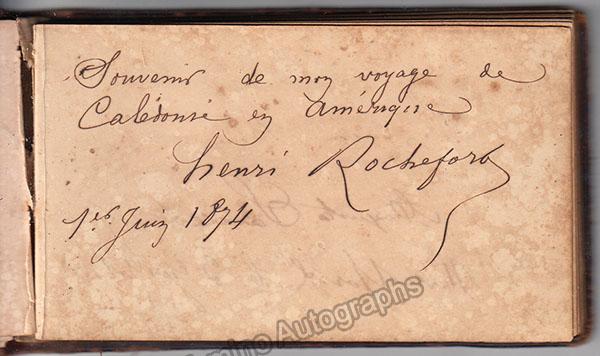 Souvenir de mon voyage de
Calédonie en Amérique
henri Rochefort
1er Juin 1874
mino Autographs